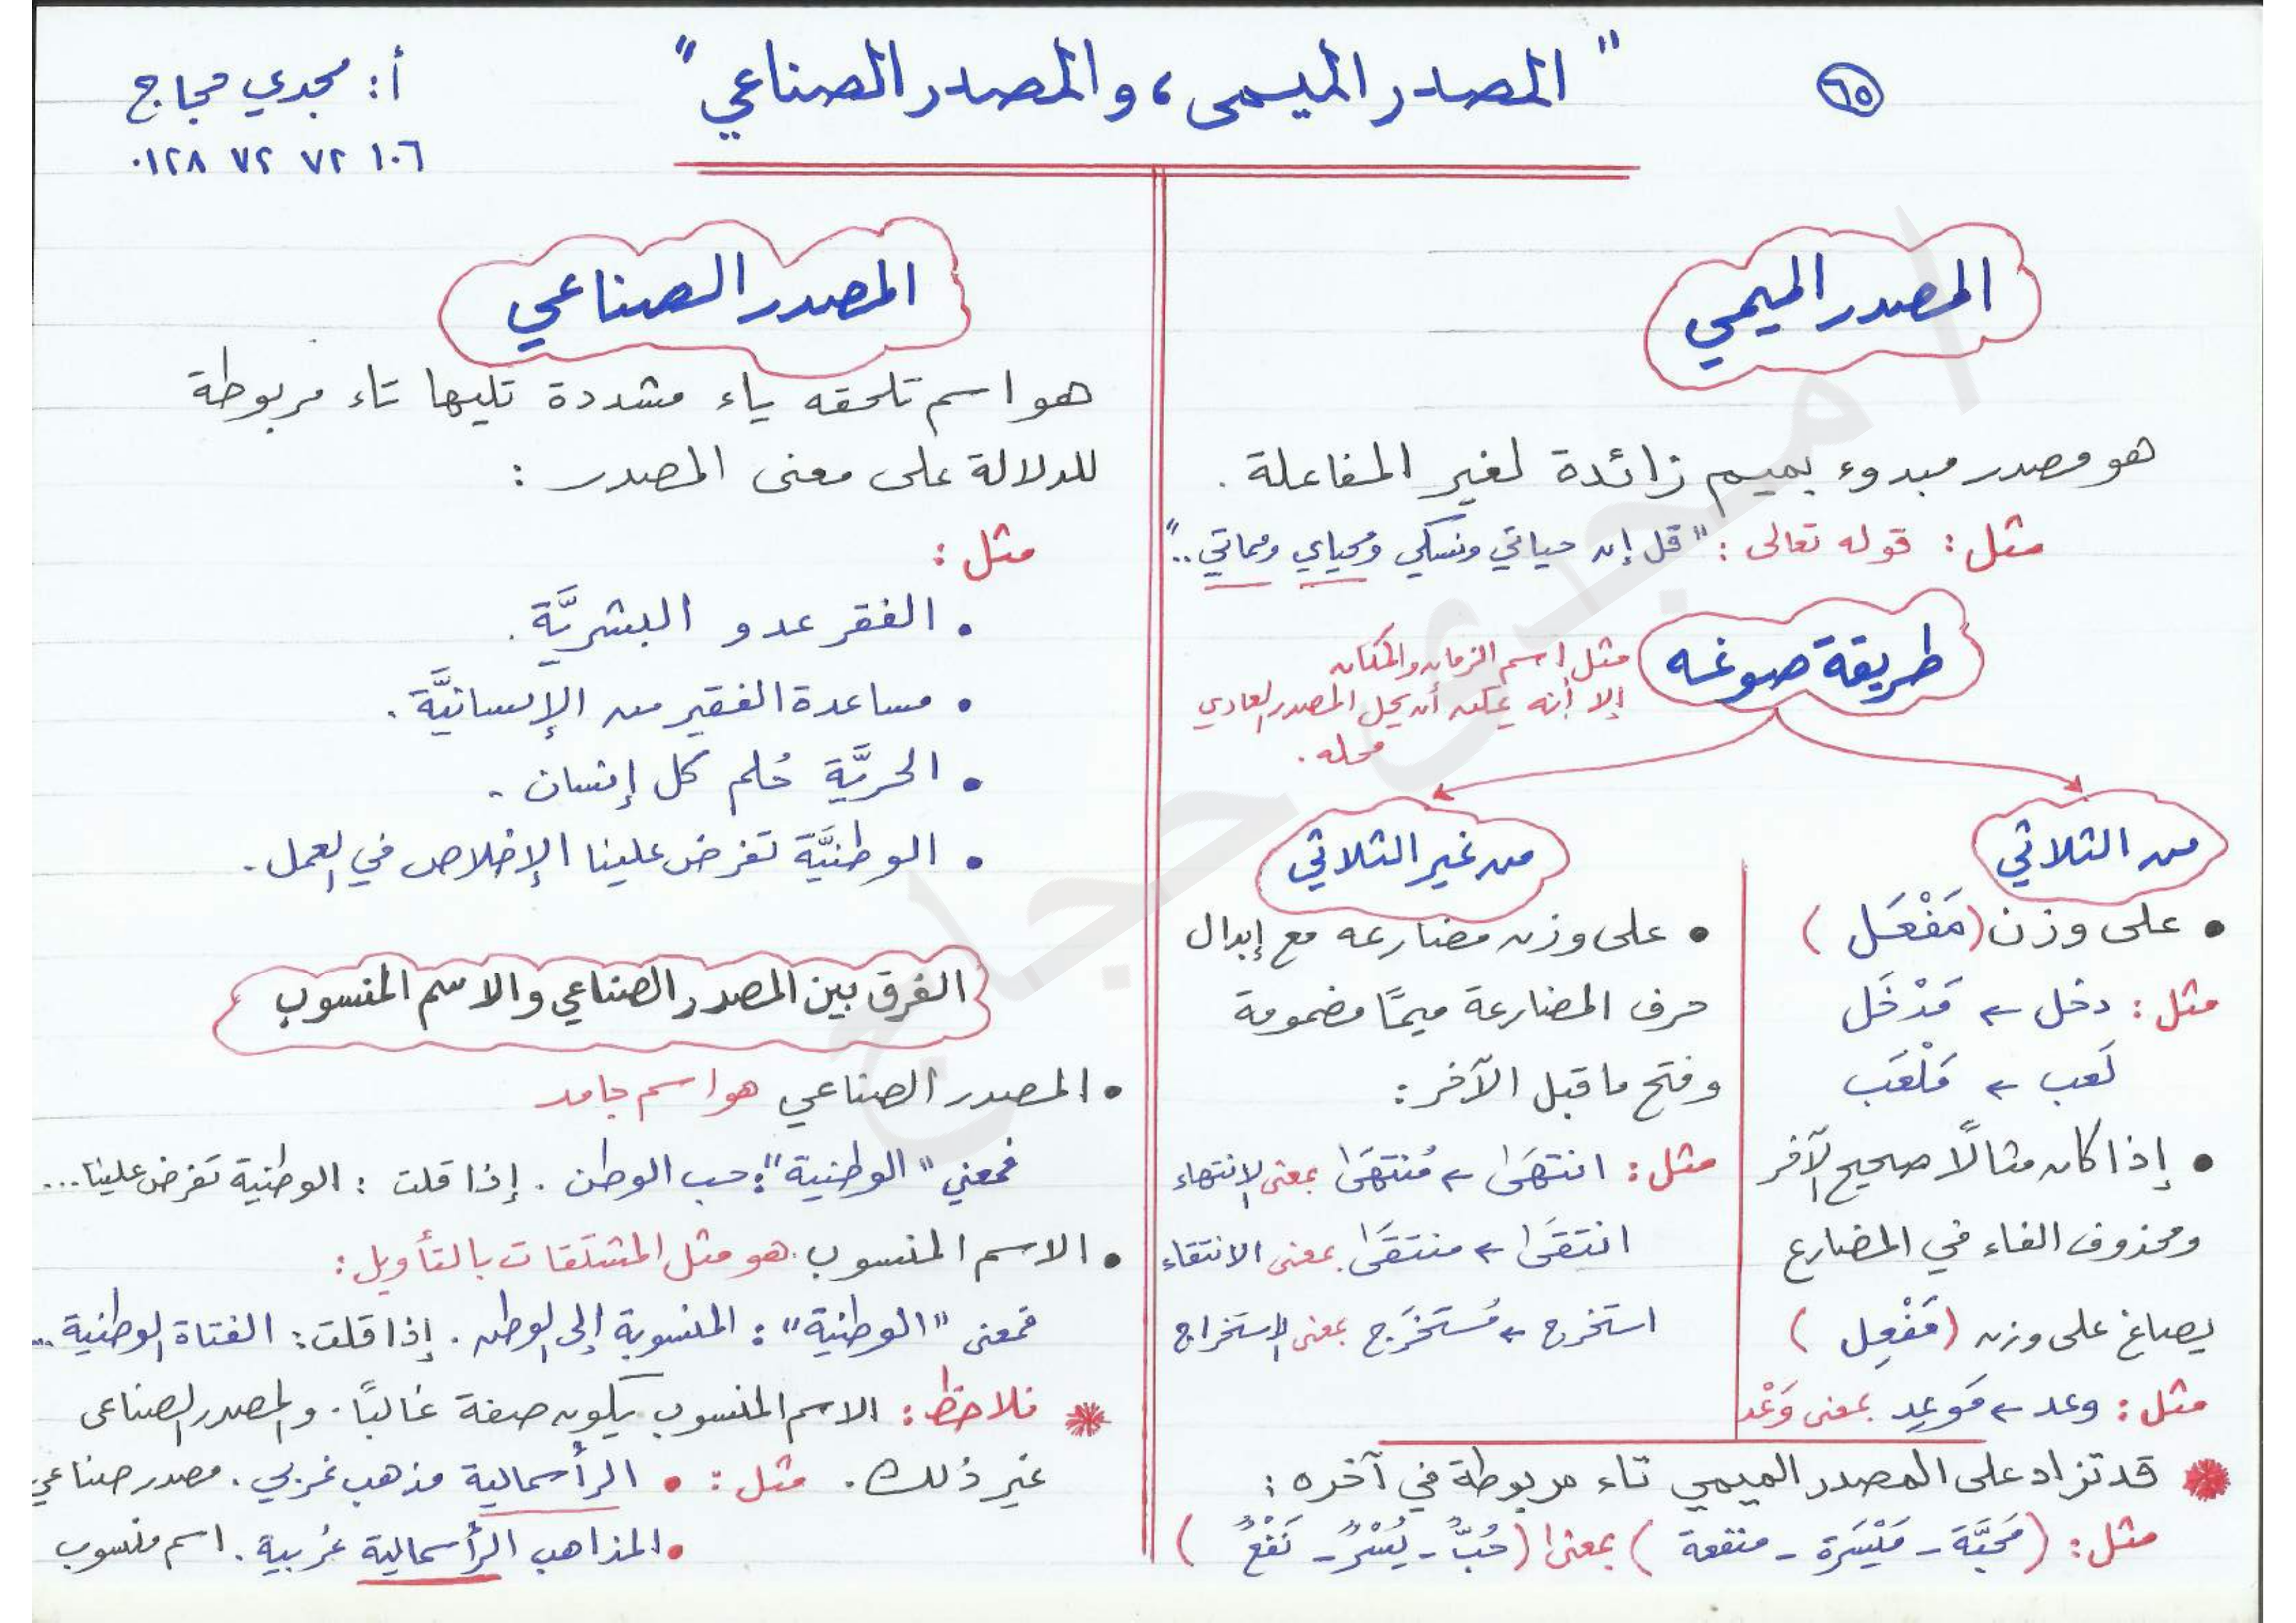 ٦٥
" المصدر الميمى ، والمصدر الصناعي "
أ: مجدي حجاج
٠١٢٨ ٧٢ ٧٢ ١٠٦
المصدر الميمي
هو مصدر مبدوء بميم زائدة لغير المفاعلة .
مثل : قوله تعالى : " قل إن حياتي ونسكي ومحياي ومماتي .. "
طريقة صوغه
مثل اسم الزمان والمكان
إلا أنه يمكن أن يحل المصدر العادي
محله .
من الثلاثي
• على وزن ( مَفْعَل )
مثل : دخل ← مَدْخَل
لَعب ← مَلْعَب
• إذا كان مثالًا صحيح الآخر
ومحذوف الفاء في المضارع
يصاغ على وزن ( مَفْعِل )
مثل : وعد ← مَوعِد بمعنى وَعْد
من غير الثلاثي
• على وزن مضارعه مع إبدال
حرف المضارعة ميمًا مضمومة
وفتح ما قبل الآخر :
مثل : انتهَىٰ ← مُنتهَىٰ بمعنى الانتهاء
انتقَىٰ ← منتقَىٰ بمعنى الانتقاء
استخرج ← مُستخرَج بمعنى الاستخراج
قد تزاد على المصدر الميمي تاء مربوطة في آخره :
مثل : ( مَحَبَّة - مَيْسَرَة - منفعة ) بمعنى ( حُبٌّ - يُسْرٌ - نَفْعٌ )
المصدر الصناعي
هو اسم تلحقه ياء مشددة تليها تاء مربوطة
للدلالة على معنى المصدر :
مثل :
• الفقر عدو البشريَّة .
• مساعدة الفقير من الإنسانيَّة .
• الحريَّة حُلم كل إنسان .
• الوطنيَّة تفرض علينا الإخلاص في العمل .
الفرق بين المصدر الصناعي والاسم المنسوب
• المصدر الصناعي هو اسم جامد
فمعني " الوطنية " : حب الوطن . إذا قلت : الوطنية تفرض علينا ...
• الاسم المنسوب هو مثل المشتقات بالتأويل :
فمعنى " الوطنية " : المنسوبة إلى الوطن . إذا قلت : الفتاة الوطنية ...
فلاحظ : الاسم المنسوب يكون صفة غالبًا . والمصدر الصناعى
غير ذلك . مثل : • الرأسمالية مذهب غربي . مصدر صناعي
• المذاهب الرأسمالية غربية . اسم منسوب
أ/ مجدى حجاج